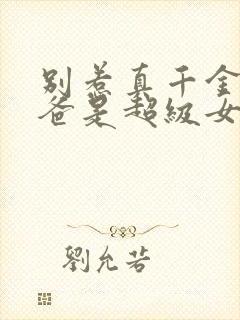 别惹真千金
爸是超级女
劉允若